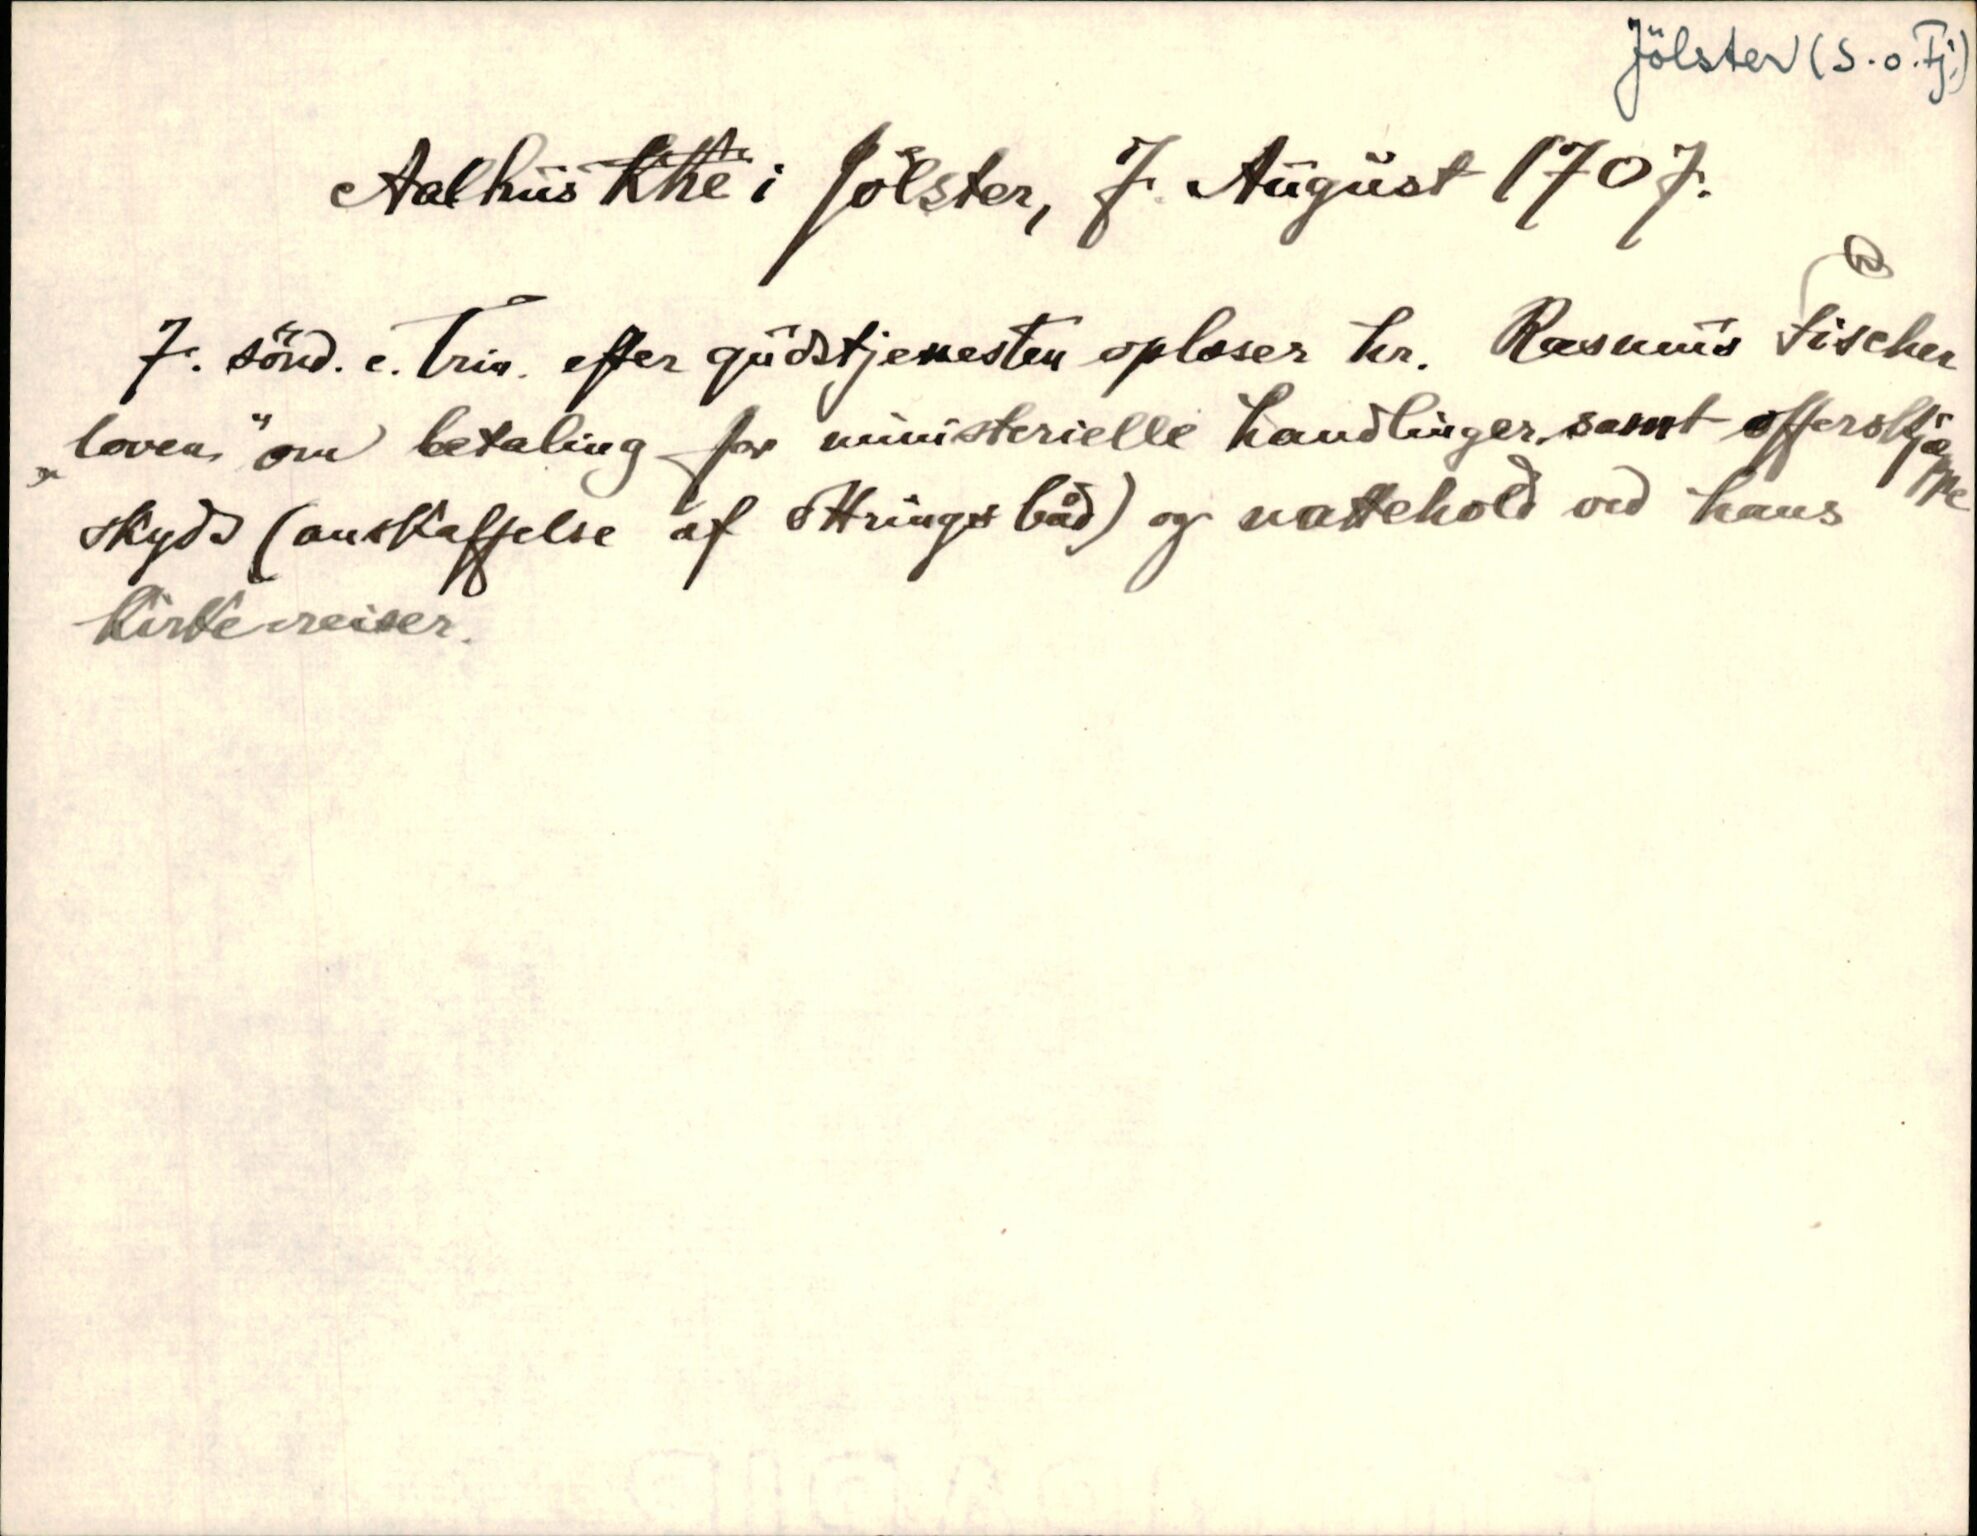 Jölster (S. o. Fj.)
Aalhus Kke i Jölster, 7. August 1707.
7. sönd. e. Trin. efter gudstjenesten oplæser hr. Rasmus Fischer
„loven" om betaling for ministerielle handlinger, samt offerskjæppe
skyds (anskaffelse af ottrings båd) og nattehold ved hans
kirkereiser.